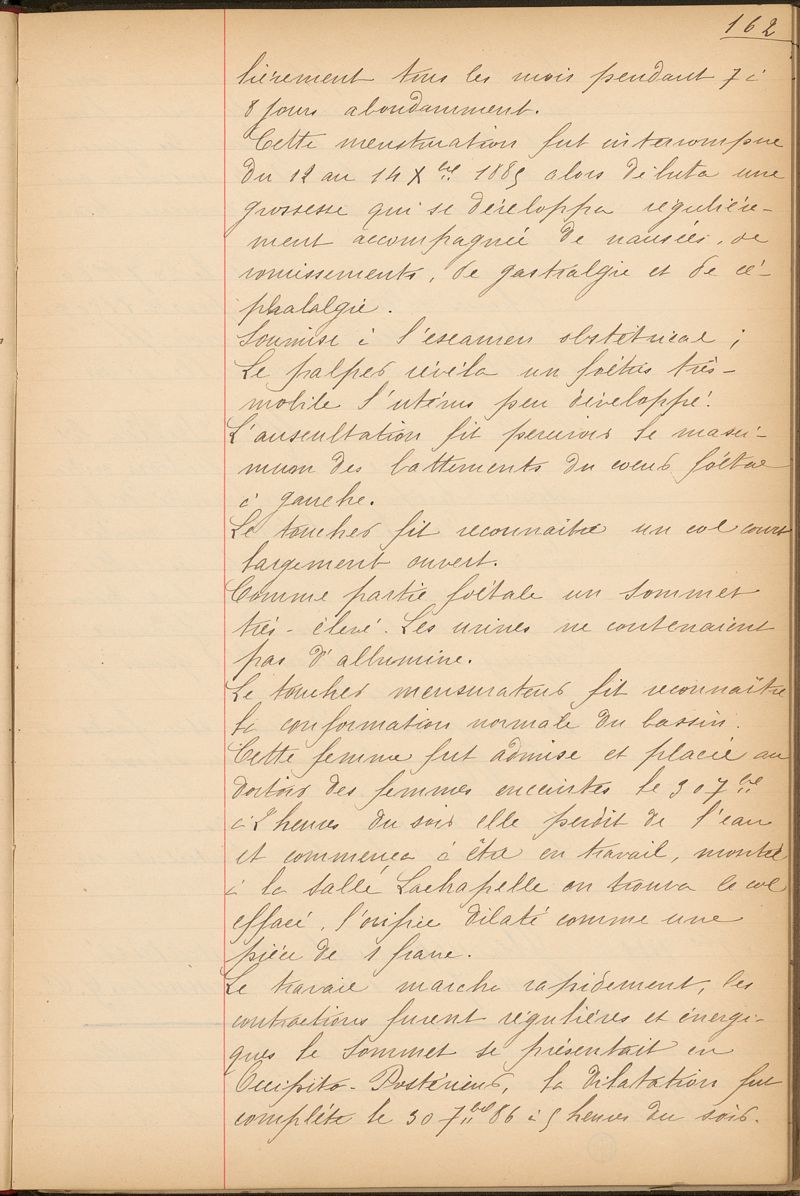 162
lièrement tous les mois pendant 7 à
8 jours abondamment.
Cette menstruation fut interrompue
du 12 au 14 Xbre 1885 alors débuta une
grossesse qui se développa régulière-
ment accompagnée de nausées, de
vomissements, de gastralgie et de cé-
phalalgie.
Soumise à l'examen obstétrical ;
Le palper révéla un foetus très-
mobile l'utérus peu développé.
L'auscultation fit percevoir le maxi-
mum des battements du coeur foetal
à gauche.
Le toucher fit reconnaître un col court
largement ouvert.
Comme partie foétale un sommet
très-élevé. Les urines ne contenaient
pas d'albumine.
Le toucher mensurateur fit reconnaître
la conformation normale du bassin.
Cette femme fut admise et placée au
dortoir des femmes enceintes le 30 7bre
à 2 heures du soir elle perdit de l'eau
et commença à être en travail, montée
à la salle Lachapelle on trouva le col
effacé, l'orifice dilaté comme une
pièce de 1 franc.
Le travail marcha rapidement, les
contractions furent régulières et énergi-
ques le sommet se présentait en
Occipito-Postérieur, la dilatation fut
complète le 30 7bre 86 à 5 heures du soir.